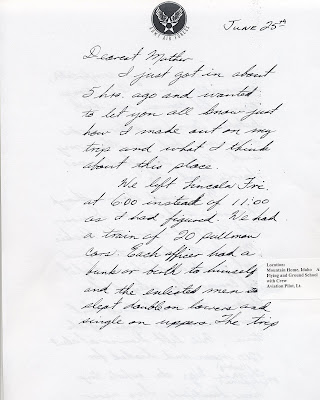 ARMY AIR FORCES
JUNE 25th
Dearest Mother
I just got in about
5 hrs. ago and wanted
to let you all know just
how I made out on my
trip and what I think
about this place.
We left Lincoln Fri.
at 6:00 instead of 11:00
as I had figured. We had
a train of 20 pullman
cars. Each officer had a
bunk or berth to himself
and the enlisted men
slept double on lowers and
single on uppers. The trip
Location:
Mountain Home, Idaho A
Flying and Ground School
with Crew
Aviation Pilot, Lt.